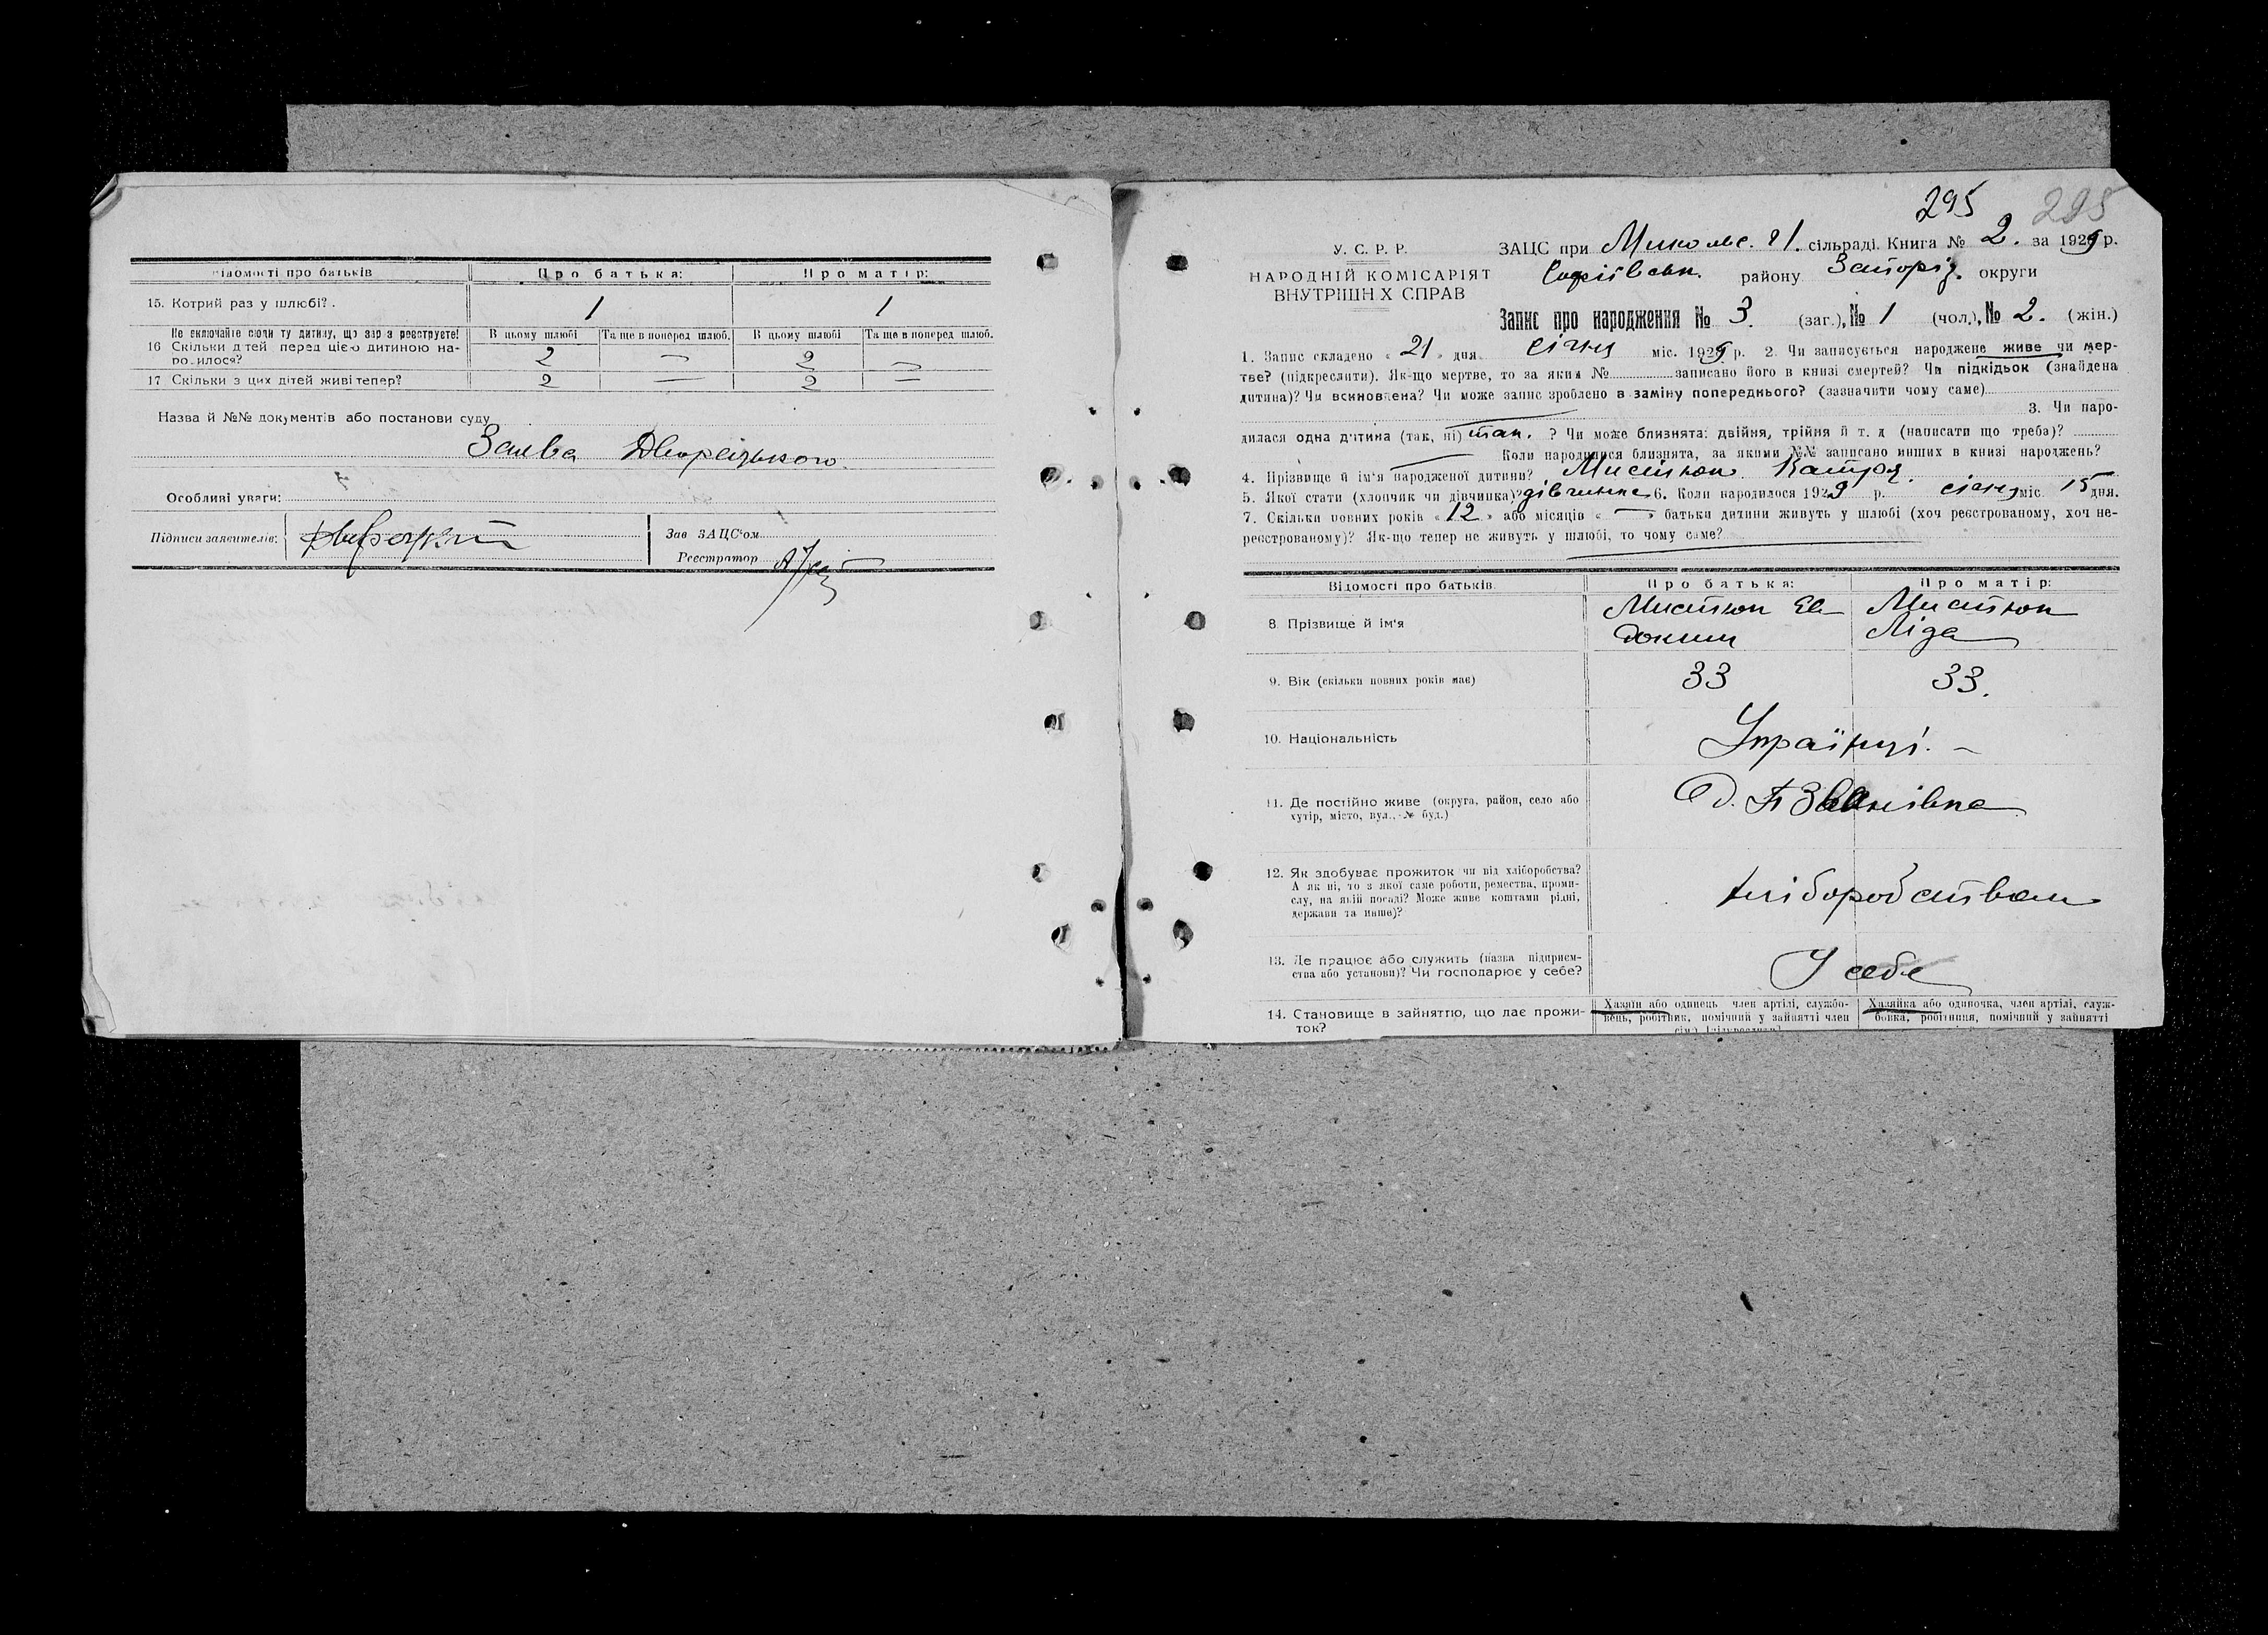 відомості про батьків
Про батька:
Про матір:
15. Котрий раз у шлюбі?
1
1
Не включайте сюди ту дитину, що зараз реєструєте!
В цьому шлюбі
Та ще в поперед шлюб.
В цьому шлюбі
Та ще в поперед шлюб.
16 Скільки дітей перед цією дитиною на-
родилося?
2
—
2
—
17 Скільки з цих дітей живі тепер?
2
—
2
—
Назва й №№ документів або постанови суду
Заява
Особливі уваги:
Підписи заявителів:
Зав ЗАЦС'ом
Реєстратор
295
295
У. С. Р. Р.
НАРОДНІЙ КОМІСАРІЯТ
ВНУТРІШНІХ СПРАВ
ЗАЦС при сільраді. Книга № 2. за 1929 р.
Софіївськ. району Запоріз. округи
Запис про народження № 3. (заг.), № 1 (чол.), № 2. (жін.)
1. Запис складено « 21 » дня січня міс. 1929 р. 2. Чи записується народжене живе чи мер-
тве? (підкреслити). Як-що мертве, то за яким № записано його в книзі смертей? Чи підкідьок (знайдена
дитина)? Чи всиновлена? Чи може запис зроблено в заміну попереднього? (зазначити чому саме)
3. Чи наро-
дилася одна дитина (так, ні) так. ? Чи може близнята: двійня, трійня й т. д (написати що треба)?
Коли народилися близнята, за якими №№ записано инших в книзі народжень?
4. Прізвище й ім'я народженої дитини? Миситюк Катря.
5. Якої стати (хлопчик чи дівчинка)? дівчинка 6. Коли народилося 1929 р. січня міс. 15 дня.
7. Скільки повних років « 12 » або місяців « — » батьки дитини живуть у шлюбі (хоч реєстрованому, хоч не-
реєстрованому)? Як-що тепер не живуть у шлюбі, то чому саме?
Відомості про батьків
Про батька:
Про матір:
8 Прізвище й ім'я
Миситюк Ев-
доким
Миситюк
Ліда
9. Вік (скільки повних років має)
33
33.
10. Національність
Українці. –
11. Де постійно живе (округа, район, село або
хутір, місто, вул., № буд.)
12. Як здобуває прожиток чи від хліборобства?
А як ні, то з якої саме роботи, ремества, проми-
слу, на якій посаді? Може живе коштами рідні,
держави та инше)?
хліборобством
13. Де працює або служить (назва підприєм-
ства або установи)? Чи господарює у себе?
У себе
14. Становище в зайняттю, що дає прожи-
ток?
Хазяїн або одинець член артілі, службо-
вець, робітник, помічний у зайнятті член
Хазяйка або одиночка, член артілі, служ-
бовка, робітниця, помічний у зайнятті